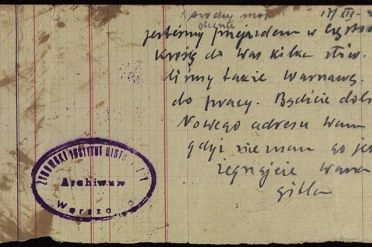 jesteśmy przejazdem w Często
kreślę do Was kilka słów.
liśmy także Warszawę.
do pracy. Bądźcie dobr
Nowego adresu Wam
gdyż nie mam go jes
żegnajcie
gitla
ŻYDOWSKI INSTYTUT HISTORYCZNY
Archiwum
Warszawa